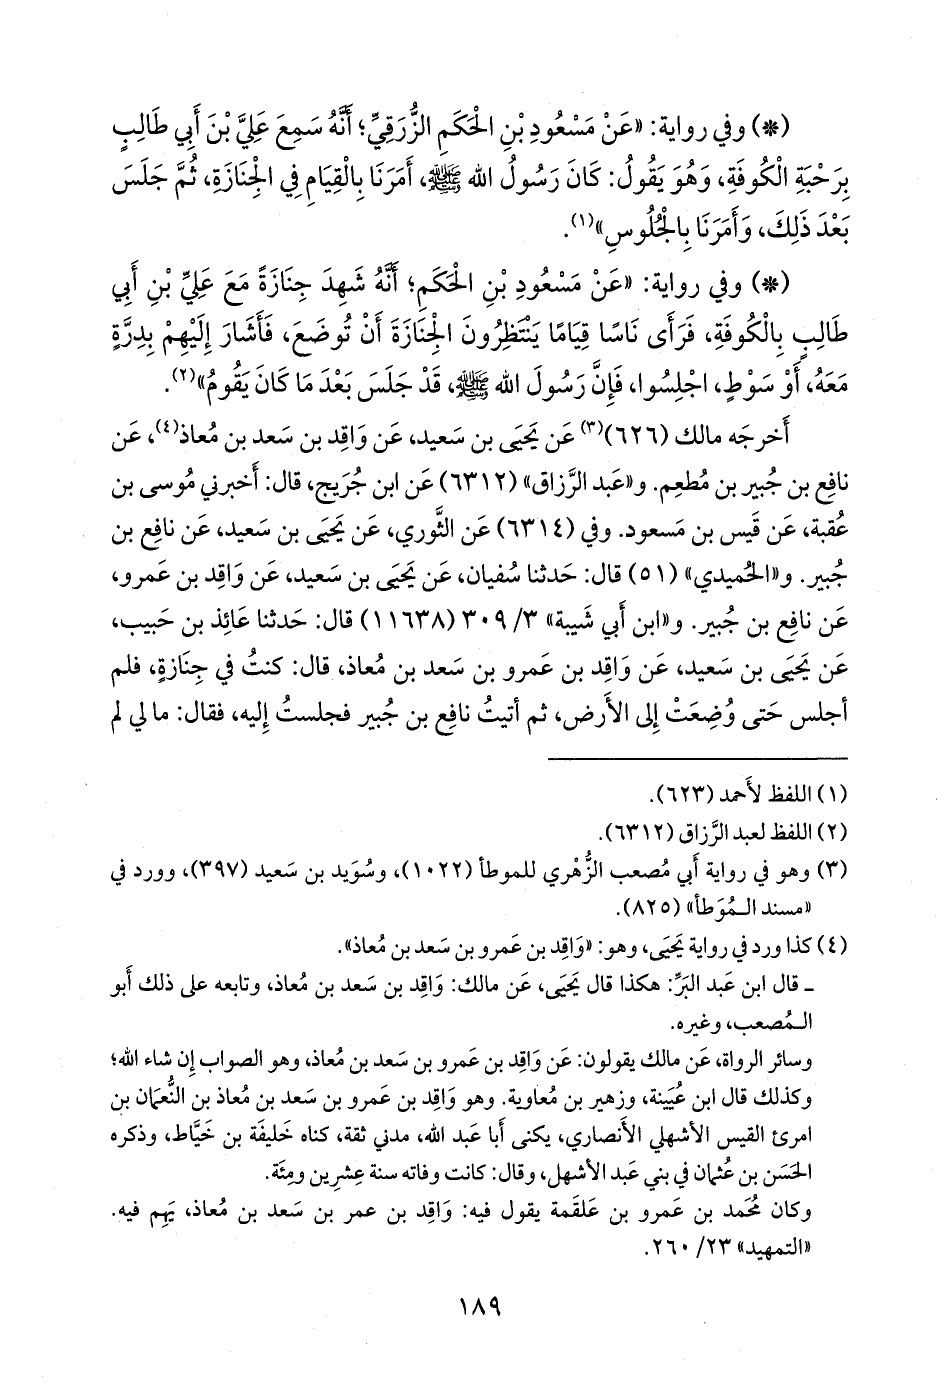 (*) وفي رواية: «عَنْ مَسْعُودِ بْنِ الْحَكَمِ الزُّرَقِيِّ؛ أَنَّهُ سَمِعَ عَلِيَّ بْنَ أَبِي طَالِبٍ
بِرَحْبَةِ الْكُوفَةِ، وَهُوَ يَقُولُ: كَانَ رَسُولُ الله ﷺ، أَمَرَنَا بِالْقِيَامِ فِي الْجِنَازَةِ، ثُمَّ جَلَسَ
بَعْدَ ذَلِكَ، وَأَمَرَنَا بِالْجُلُوسِ»(١).
(*) وفي رواية: «عَنْ مَسْعُودِ بْنِ الْحَكَمِ؛ أَنَّهُ شَهِدَ جِنَازَةً مَعَ عَلِيِّ بْنِ أَبِي
طَالِبٍ بِالْكُوفَةِ، فَرَأَى نَاسًا قِيَامًا يَنْتَظِرُونَ الْجِنَازَةَ أَنْ تُوضَعَ، فَأَشَارَ إِلَيْهِمْ بِدِرَّةٍ
مَعَهُ، أَوْ سَوْطٍ، اجْلِسُوا، فَإِنَّ رَسُولَ الله ﷺ، قَدْ جَلَسَ بَعْدَ مَا كَانَ يَقُومُ»(٢).
أَخرجَه مالك (٦٢٦)(٣) عَن يَحيَى بن سَعيد، عَن وَاقِد بن سَعد بن مُعاذ(٤)، عَن
نافِع بن جُبير بن مُطعِم. و«عَبد الرَّزاق» (٦٣١٢) عَن ابن جُرَيج، قال: أَخبرني مُوسى بن
عُقبة، عَن قَيس بن مَسعود. وفي (٦٣١٤) عَن الثَّوري، عَن يَحيَى بن سَعيد، عَن نافِع بن
جُبير. و«الحُميدي» (٥١) قال: حَدثنا سُفيان، عَن يَحيَى بن سَعيد، عَن وَاقِد بن عَمرو،
عَن نافِع بن جُبير. و«ابن أَبي شَيبة» ٣/ ٣٠٩ (١١٦٣٨) قال: حَدثنا عائِذ بن حَبيب،
عَن يَحيَى بن سَعيد، عَن وَاقِد بن عَمرو بن سَعد بن مُعاذ، قال: كنتُ في جِنَازةٍ، فلم
أجلس حَتى وُضِعَتْ إِلى الأَرض، ثم أتيتُ نافِع بن جُبير فجلستُ إِليه، فقال: ما لي لم
(١) اللفظ لأَحمد (٦٢٣).
(٢) اللفظ لعبد الرَّزاق (٦٣١٢).
(٣) وهو في رواية أَبي مُصعب الزُّهْري للموطأ (١٠٢٢)، وسُوَيد بن سَعيد (٣٩٧)، وورد في
«مسند الـمُوَطأ» (٨٢٥).
(٤) كذا ورد في رواية يَحيَى، وهو: «وَاقِد بن عَمرو بن سَعد بن مُعاذ».
ـ قال ابن عَبد البَرِّ: هكذا قال يَحيَى، عَن مالك: وَاقِد بن سَعد بن مُعاذ، وتابعه على ذلك أَبو
الـمُصعب، وغيره.
وسائر الرواة، عَن مالك يقولون: عَن وَاقِد بن عَمرو بن سَعد بن مُعاذ، وهو الصواب إِن شاء الله؛
وكذلك قال ابن عُيَينة، وزهير بن مُعاوية. وهو وَاقِد بن عَمرو بن سَعد بن مُعاذ بن النُّعمان بن
امرئ القيس الأشهلي الأَنصاري، يكنى أَبا عَبد الله، مدني ثقة، كناه خَليفَة بن خَيَّاط، وذكره
الحَسَن بن عُثمان في بني عَبد الأشهل، وقال: كانت وفاته سنة عِشرين ومِئَة.
وكان مُحَمد بن عَمرو بن عَلقمة يقول فيه: وَاقِد بن عمر بن سَعد بن مُعاذ، يَهِم فيه.
«التمهيد» ٢٣/ ٢٦٠.
١٨٩